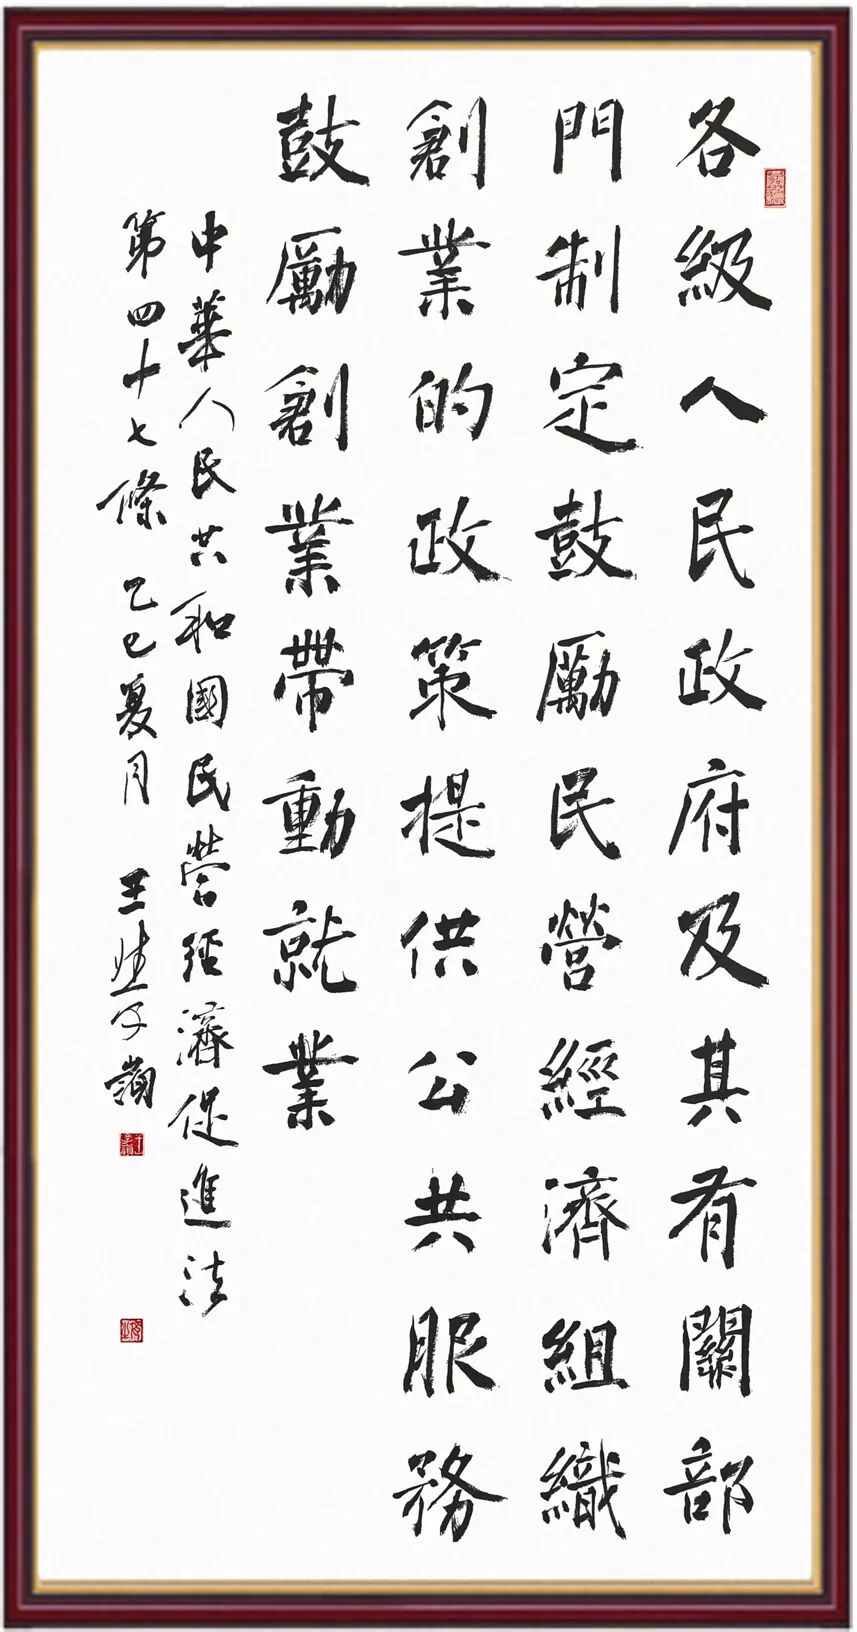 各級人民政府及其有關部
門制定鼓勵民營經濟組織
創業的政策提供公共服務
鼓勵創業帶動就業
中華人民共和國民營經濟促進法
第四十七條 乙巳夏月 王